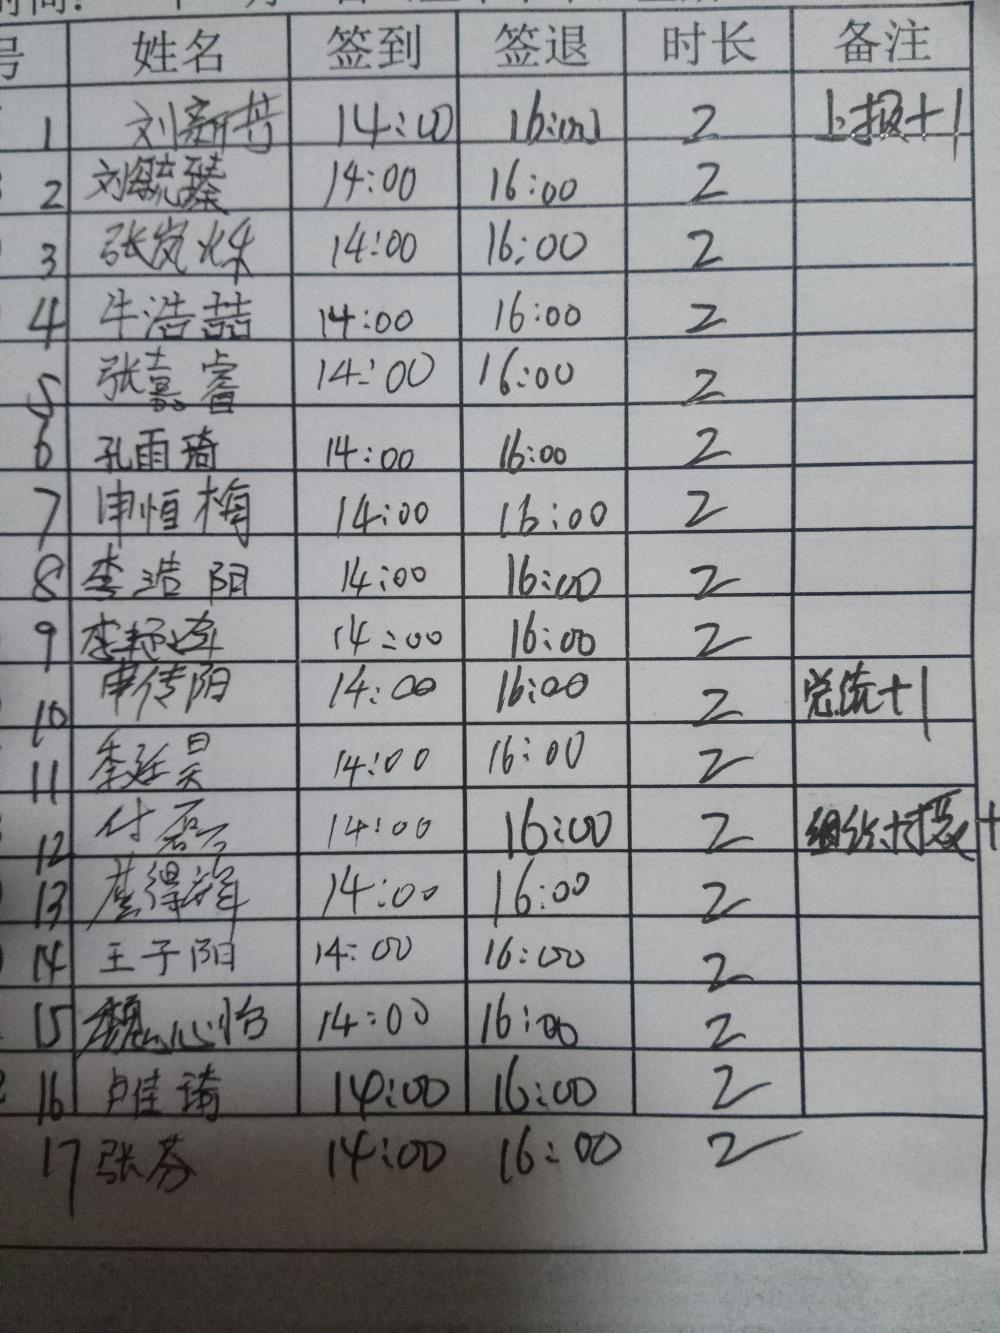 时间:
号 姓名 签到 签退 时长 备注
1 刘新芳 14:00 16:00 2 上报+1
2 刘毓臻 14:00 16:00 2
3 张岚烁 14:00 16:00 2
4 牛浩喆 14:00 16:00 2
5 张嘉睿 14:00 16:00 2
6 孔雨琦 14:00 16:00 2
7 申恒梅 14:00 16:00 2
8 李浩阳 14:00 16:00 2
9 李 14:00 16:00 2
10 申传阳 14:00 16:00 2 总统+1
11 李延昊 14:00 16:00 2
12 付磊 14:00 16:00 2 组织+摄+
13 14:00 16:00 2
14 王子阳 14:00 16:00 2
15 魏心怡 14:00 16:00 2
16 卢佳琦 14:00 16:00 2
17 张芬 14:00 16:00 2